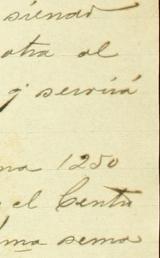 siendo
otra al
q' servirá
na 1250
el Centro
ma sema